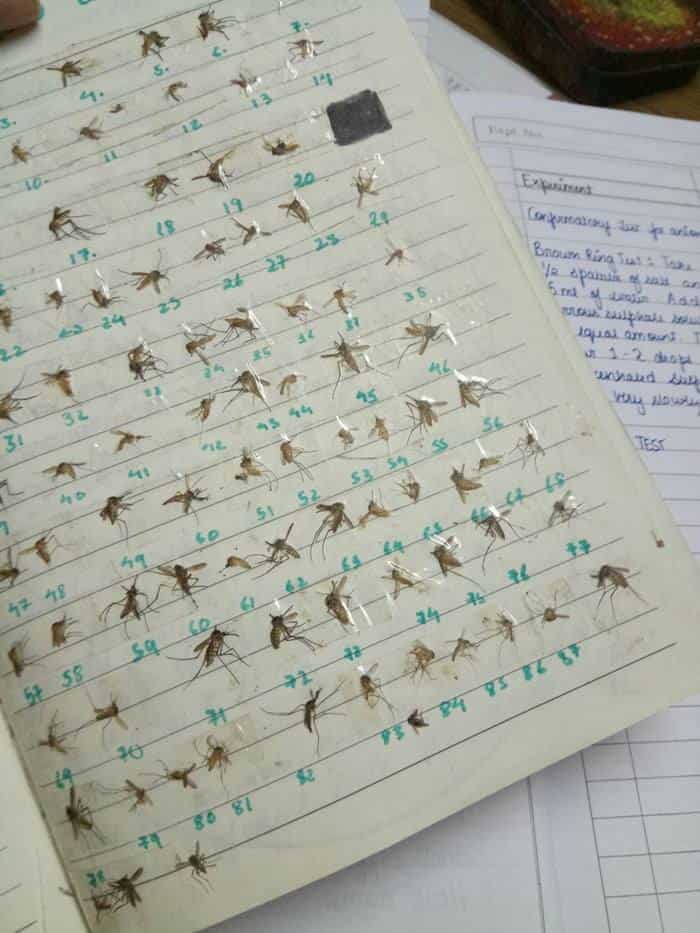 3. 4. 5. 6. 7.
10. 11 12 13 14
17. 18 19 20
22 23 24 25 26 27 28 29
31 32 33 34 35 36 37 38
40 41 42 43 44 45 46
47 48 49 50 51 52 53 54 55 56
57 58 59 60 61 62 63 64 65 66 67 68
69 70 71 72 73 74 75 76 77
78 79 80 81 82 83 84 85 86 87
Page No.
Experiment
Confirmatory Test for
Brown Ring Test: Take
1/2 spatula of salt
5 ml of water Add
sulphate
equal amount.
1-2 drops
very slowly
TEST